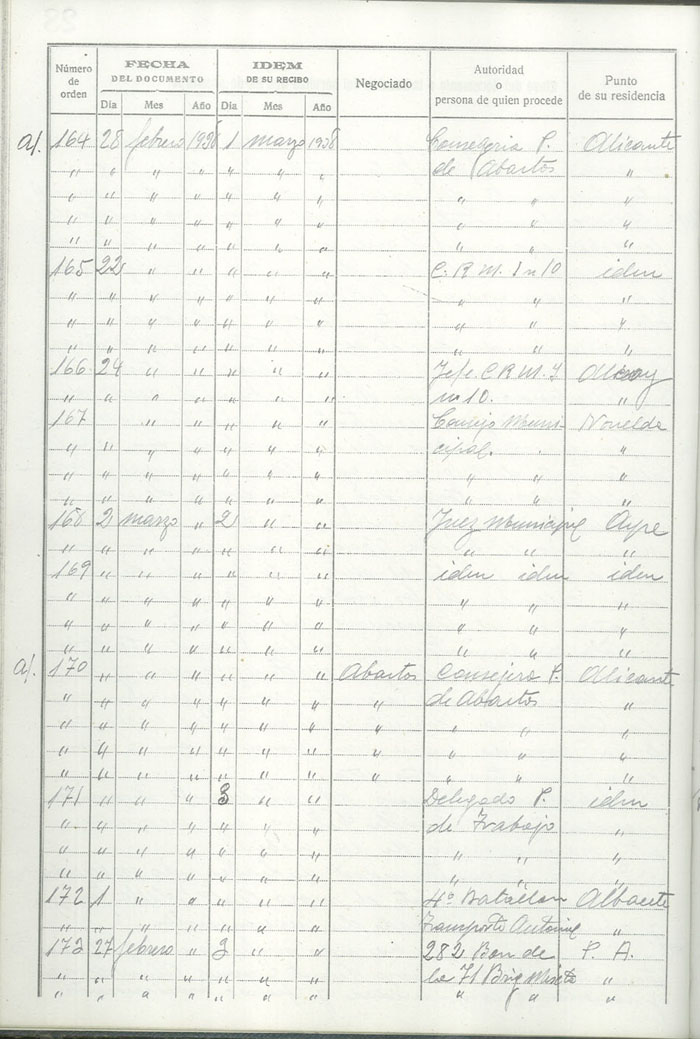 Número de orden FECHA DEL DOCUMENTO IDEM DE SU RECIBO Negociado Autoridad o persona de quien procede Punto de su residencia
Dia Mes Año Dia Mes Año
a/. 164 28 febrero 1938 1 marzo 1938 Consejeria P. Alicante
" " " " " " " de Abastos "
" " " " " " " " " "
" " " " " " " " " "
" " " " " " " " " "
165 22 " " " " " C. R. M. I n 10 idem
" " " " " " " " " "
" " " " " " " " " "
" " " " " " " " " "
166 24 " " " " " Jefe C R M. I Alcoy
" " " " " " " n 10. "
167 " " " " " Consejo Muni- Novelda
" " " " " " " cipal. "
" " " " " " " " " "
" " " " " " " " " "
168 2 marzo " 2 " " Juez Municipal Aspe
" " " " " " " " " "
169 " " " " " " idem idem idem
" " " " " " " " " "
" " " " " " " " " "
" " " " " " " " " "
a/. 170 " " " " " " Abastos Consejero P. Alicante
" " " " " " " " de Abastos "
" " " " " " " " " " "
" " " " " " " " " " "
" " " " " " " " " " "
171 " " " 3 " " Delegado P. idem
" " " " " " " de Trabajo "
" " " " " " " " " "
" " " " " " " " " "
172 1 " " " " " 4º Batallon Albacete
" " " " " " " Transporte "
173 27 febrero " 3 " " 282 Bon de P. A.
" " " " " " " la 71 Brig Mixta "
" " " " " " " " " "